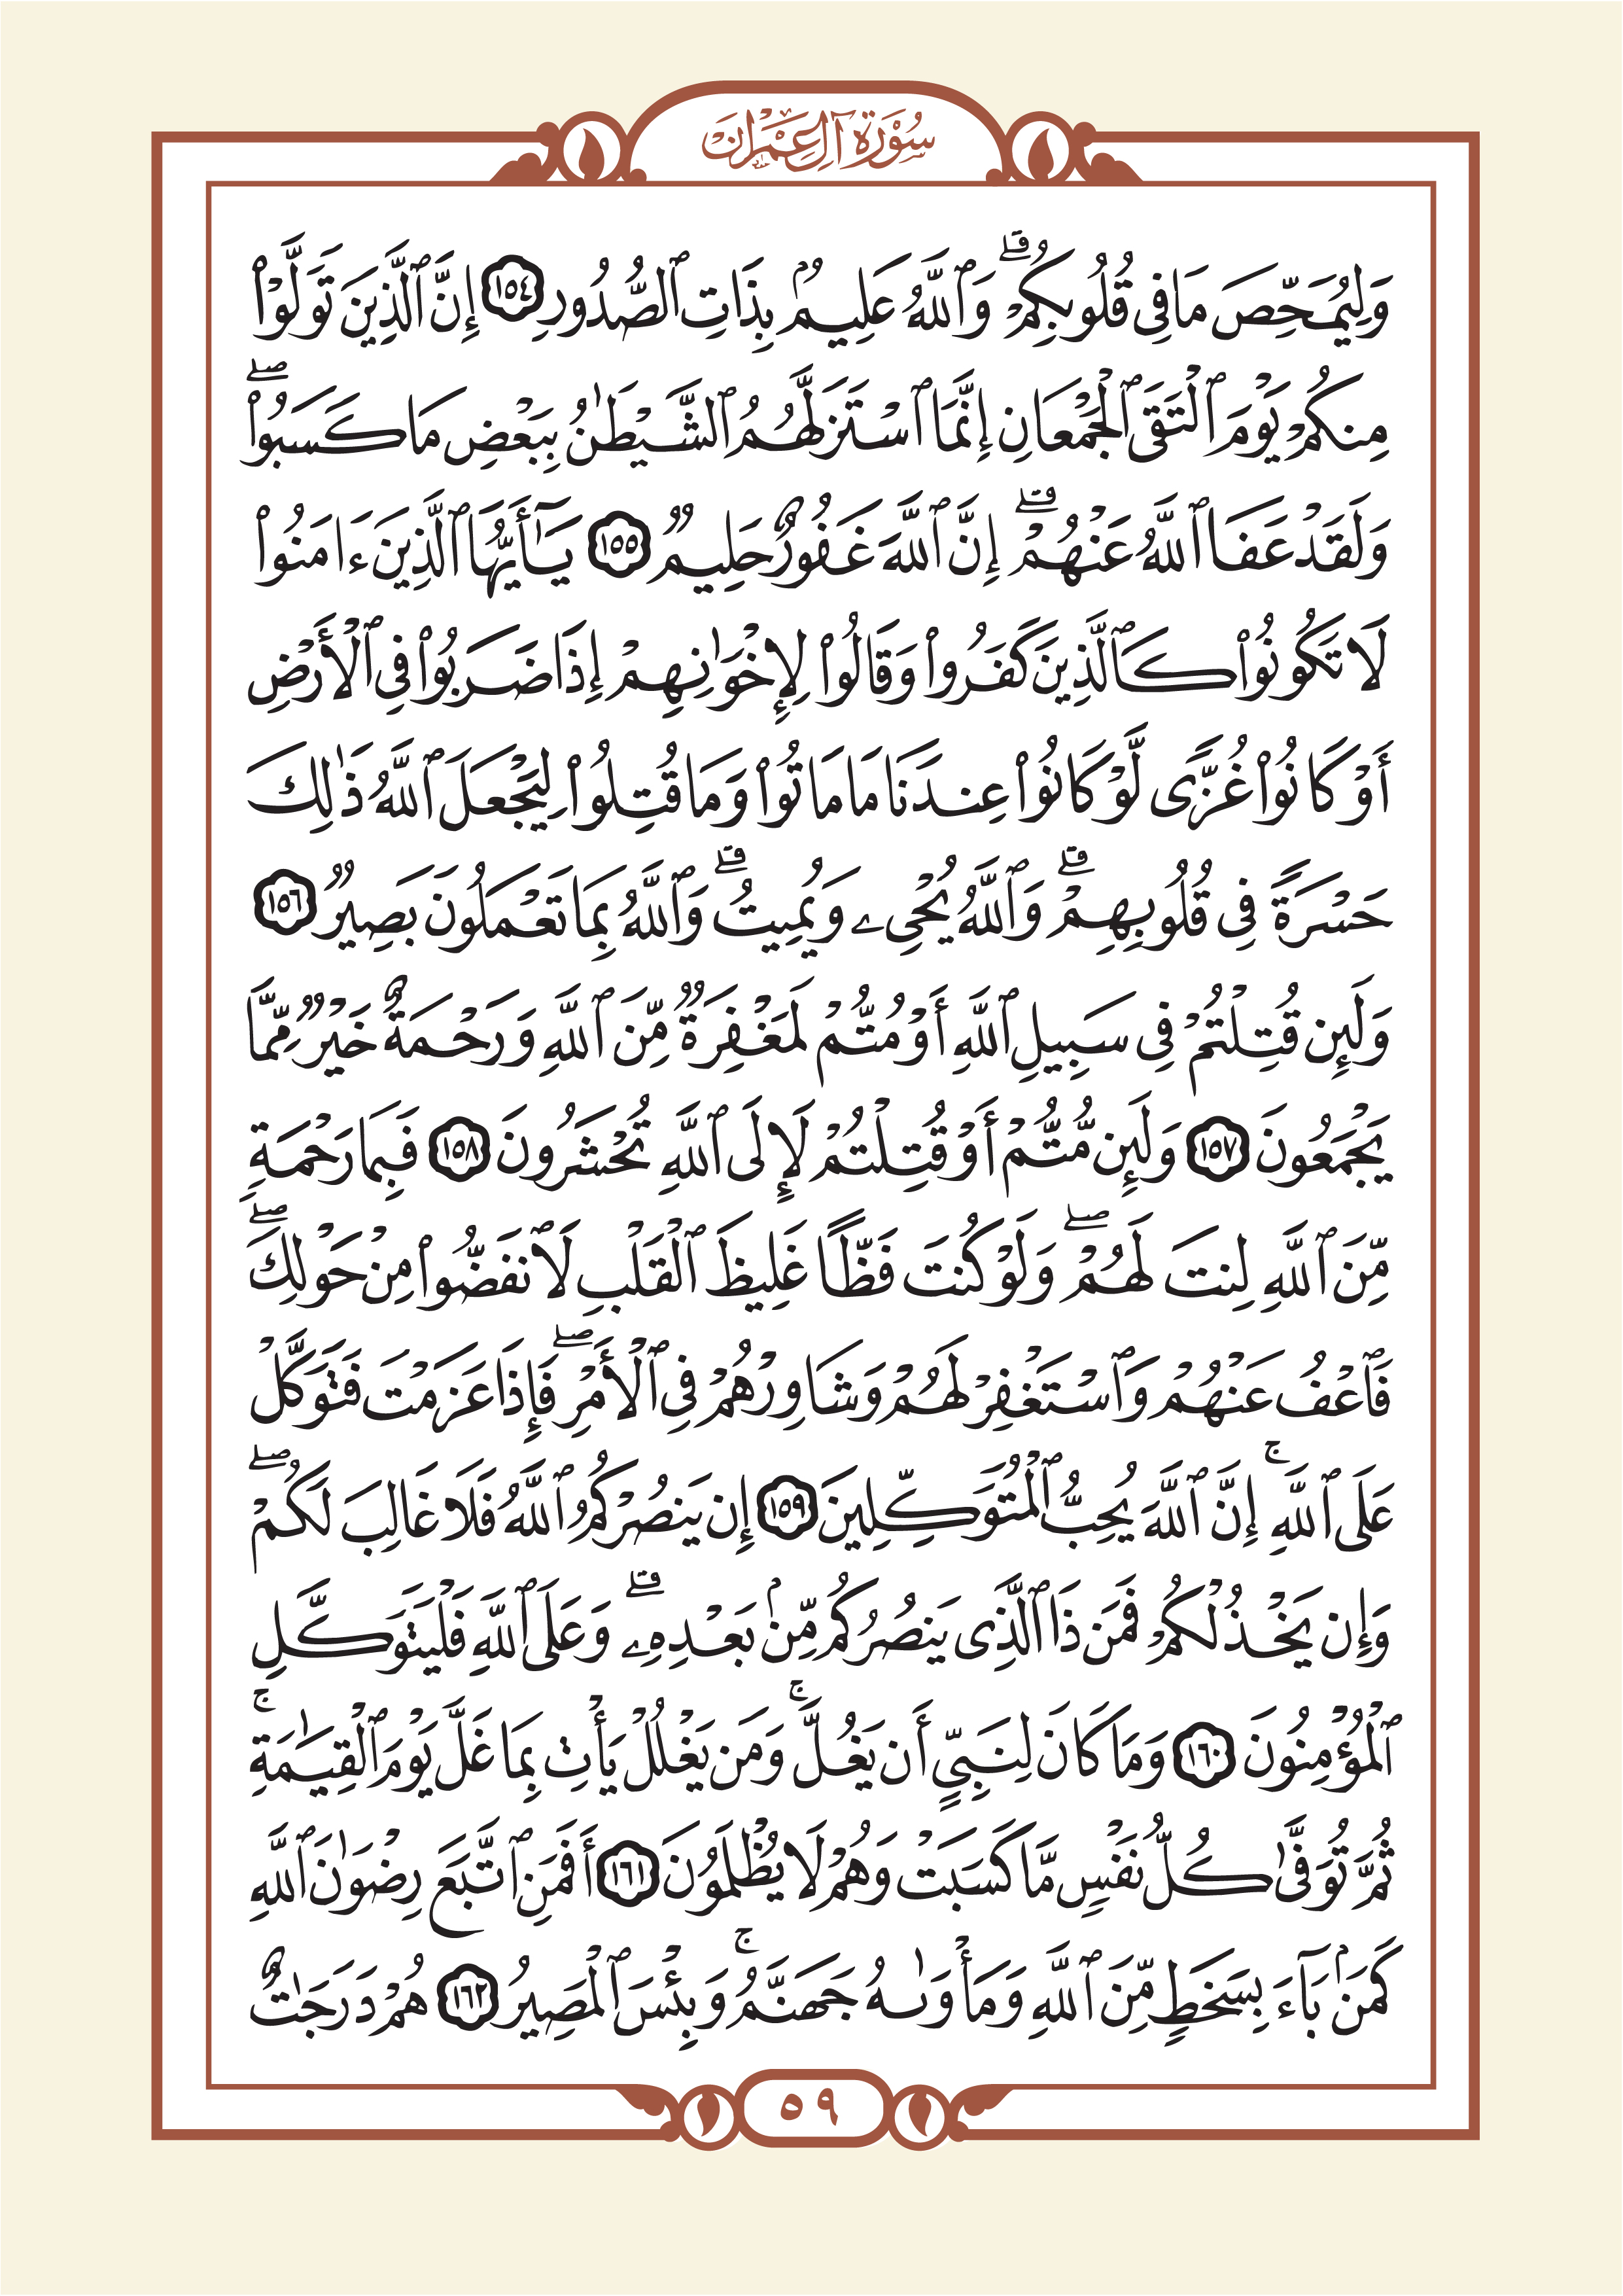 سُورَةُ آلِ عِمْرَانَ
وَلِيُمَحِّصَ مَا فِي قُلُوبِكُمْۗ وَٱللَّهُ عَلِيمُۢ بِذَاتِ ٱلصُّدُورِ ١٥٤ إِنَّ ٱلَّذِينَ تَوَلَّوْا۟
مِنكُمْ يَوْمَ ٱلْتَقَى ٱلْجَمْعَانِ إِنَّمَا ٱسْتَزَلَّهُمُ ٱلشَّيْطَٰنُ بِبَعْضِ مَا كَسَبُوا۟ۖ
وَلَقَدْ عَفَا ٱللَّهُ عَنْهُمْۗ إِنَّ ٱللَّهَ غَفُورٌ حَلِيمٌ ١٥٥ يَٰٓأَيُّهَا ٱلَّذِينَ ءَامَنُوا۟
لَا تَكُونُوا۟ كَٱلَّذِينَ كَفَرُوا۟ وَقَالُوا۟ لِإِخْوَٰنِهِمْ إِذَا ضَرَبُوا۟ فِي ٱلْأَرْضِ
أَوْ كَانُوا۟ غُزًّى لَّوْ كَانُوا۟ عِندَنَا مَا مَاتُوا۟ وَمَا قُتِلُوا۟ لِيَجْعَلَ ٱللَّهُ ذَٰلِكَ
حَسْرَةً فِي قُلُوبِهِمْۗ وَٱللَّهُ يُحْيِۦ وَيُمِيتُۗ وَٱللَّهُ بِمَا تَعْمَلُونَ بَصِيرٌ ١٥٦
وَلَئِن قُتِلْتُمْ فِي سَبِيلِ ٱللَّهِ أَوْ مُتُّمْ لَمَغْفِرَةٌ مِّنَ ٱللَّهِ وَرَحْمَةٌ خَيْرٌ مِّمَّا
يَجْمَعُونَ ١٥٧ وَلَئِن مُّتُّمْ أَوْ قُتِلْتُمْ لَإِلَى ٱللَّهِ تُحْشَرُونَ ١٥٨ فَبِمَا رَحْمَةٍ
مِّنَ ٱللَّهِ لِنتَ لَهُمْۖ وَلَوْ كُنتَ فَظًّا غَلِيظَ ٱلْقَلْبِ لَٱنفَضُّوا۟ مِنْ حَوْلِكَۖ
فَٱعْفُ عَنْهُمْ وَٱسْتَغْفِرْ لَهُمْ وَشَاوِرْهُمْ فِي ٱلْأَمْرِۖ فَإِذَا عَزَمْتَ فَتَوَكَّلْ
عَلَى ٱللَّهِۚ إِنَّ ٱللَّهَ يُحِبُّ ٱلْمُتَوَكِّلِينَ ١٥٩ إِن يَنصُرْكُمُ ٱللَّهُ فَلَا غَالِبَ لَكُمْۖ
وَإِن يَخْذُلْكُمْ فَمَن ذَا ٱلَّذِى يَنصُرُكُم مِّنۢ بَعْدِهِۦۗ وَعَلَى ٱللَّهِ فَلْيَتَوَكَّلِ
ٱلْمُؤْمِنُونَ ١٦٠ وَمَا كَانَ لِنَبِيٍّ أَن يَغُلَّۚ وَمَن يَغْلُلْ يَأْتِ بِمَا غَلَّ يَوْمَ ٱلْقِيَٰمَةِۚ
ثُمَّ تُوَفَّىٰ كُلُّ نَفْسٍ مَّا كَسَبَتْ وَهُمْ لَا يُظْلَمُونَ ١٦١ أَفَمَنِ ٱتَّبَعَ رِضْوَٰنَ ٱللَّهِ
كَمَنۢ بَآءَ بِسَخَطٍ مِّنَ ٱللَّهِ وَمَأْوَىٰهُ جَهَنَّمُۚ وَبِئْسَ ٱلْمَصِيرُ ١٦٢ هُمْ دَرَجَٰتٌ
٥٩